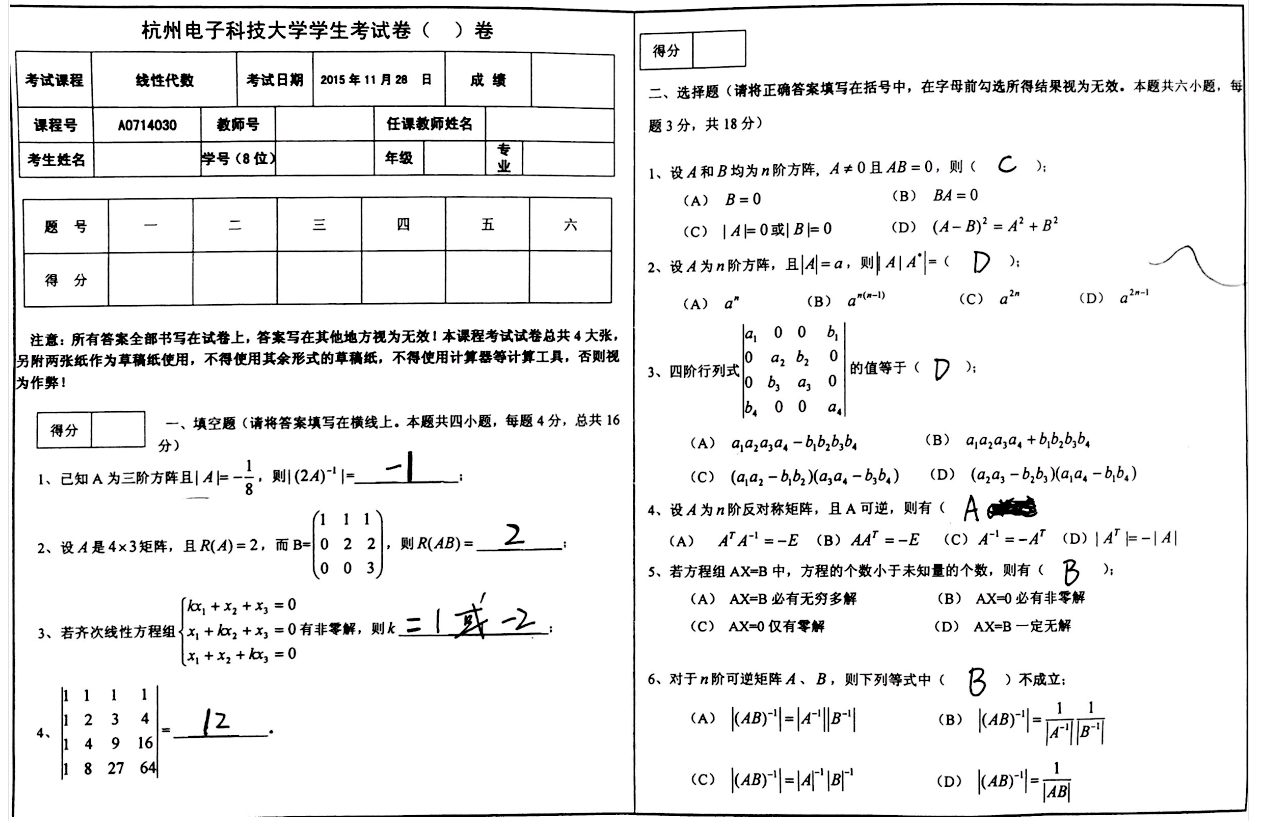 杭州电子科技大学学生考试卷（ ）卷
考试课程 线性代数 考试日期 2015年11月28 日 成 绩
课程号 A0714030 教师号 任课教师姓名
考生姓名 学号（8位） 年级 专业
题 号 一 二 三 四 五 六
得 分
注意：所有答案全部书写在试卷上，答案写在其他地方视为无效！本课程考试试卷总共4大张，
另附两张纸作为草稿纸使用，不得使用其余形式的草稿纸，不得使用计算器等计算工具，否则视
为作弊！
得分
一、填空题（请将答案填写在横线上。本题共四小题，每题4分，总共16
分）
1、已知A为三阶方阵且|A|=-1/8，则|(2A)⁻¹|= -1 ；
2、设A是4×3矩阵，且R(A)=2，而B=
1 1 1
0 2 2
0 0 3
，则R(AB)= 2 ；
3、若齐次线性方程组
kx₁+x₂+x₃=0
x₁+kx₂+x₃=0
x₁+x₂+kx₃=0
有非零解，则k =1或-2 ；
4、
1 1 1 1
1 2 3 4
1 4 9 16
1 8 27 64
= 12 .
得分
二、选择题（请将正确答案填写在括号中，在字母前勾选所得结果视为无效。本题共六小题，每
题3分，共18分）
1、设A和B均为n阶方阵，A≠0且AB=0，则（ C ）；
（A） B=0 （B） BA=0
（C） |A|=0或|B|=0 （D） (A-B)²=A²+B²
2、设A为n阶方阵，且|A|=a，则||A|A*|=（ D ）；
（A） aⁿ （B） aⁿ⁽ⁿ⁻¹⁾ （C） a²ⁿ （D） a²ⁿ⁻¹
3、四阶行列式
a₁ 0 0 b₁
0 a₂ b₂ 0
0 b₃ a₃ 0
b₄ 0 0 a₄
的值等于（ D ）；
（A） a₁a₂a₃a₄-b₁b₂b₃b₄ （B） a₁a₂a₃a₄+b₁b₂b₃b₄
（C） (a₁a₂-b₁b₂)(a₃a₄-b₃b₄) （D） (a₂a₃-b₂b₃)(a₁a₄-b₁b₄)
4、设A为n阶反对称矩阵，且A可逆，则有（ A
（A） AᵀA⁻¹=-E （B）AAᵀ=-E （C）A⁻¹=-Aᵀ （D）|Aᵀ|=-|A|
5、若方程组AX=B中，方程的个数小于未知量的个数，则有（ B ）；
（A） AX=B必有无穷多解 （B） AX=0必有非零解
（C） AX=0仅有零解 （D） AX=B一定无解
6、对于n阶可逆矩阵A、B，则下列等式中（ B ）不成立；
（A） |(AB)⁻¹|=|A⁻¹||B⁻¹| （B） |(AB)⁻¹|=1/|A⁻¹| 1/|B⁻¹|
（C） |(AB)⁻¹|=|A|⁻¹|B|⁻¹ （D） |(AB)⁻¹|=1/|AB|